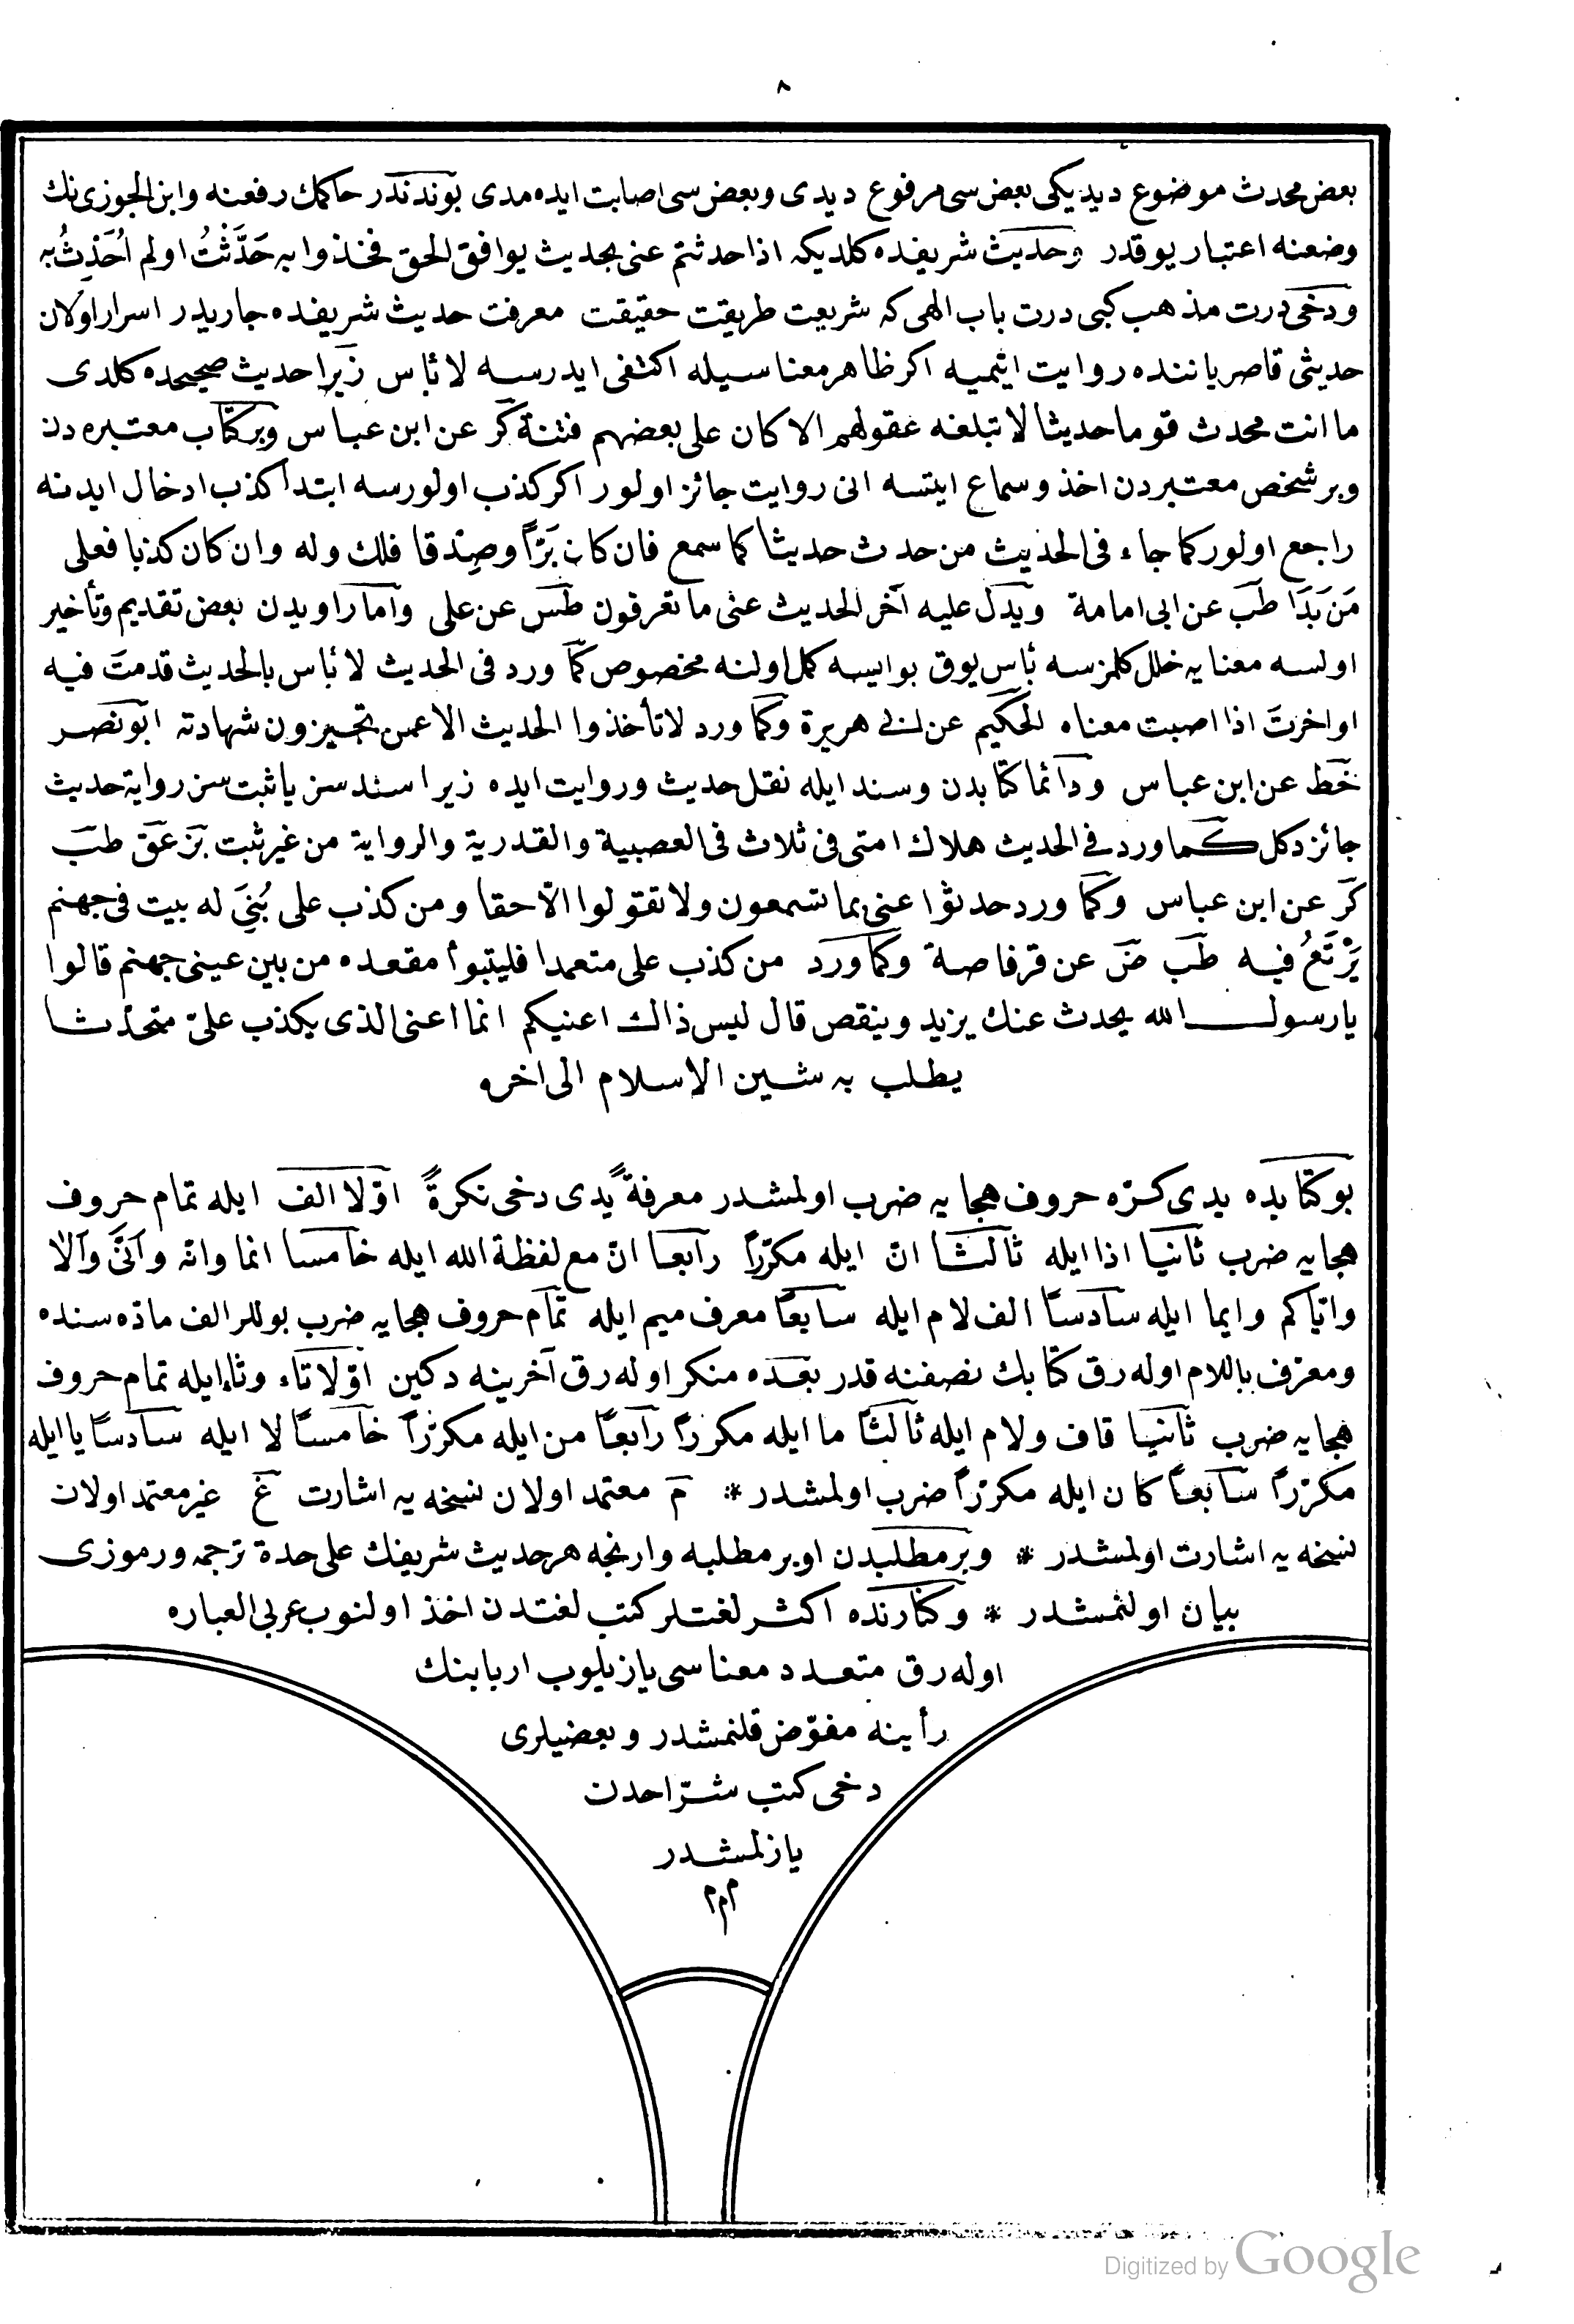 ٨
بعض محدث موضوع ديديكى بعض سى مرفوع ديدى وبعض سى اصابت ايده مدى بوندندر حاكمك رفعنه وابن الجوزى نك
وضعنه اعتبار يوقدر وحديث شريفده كلديكه اذا حدثتم عنى بحديث يوافق الحق فخذوا به حَدَّثْتُ او لم اُحَدِّثُ به
ودخى درت مذهب كبى درت باب الهى كه شريعت طريقت حقيقت معرفت حديث شريفده جاريدر اسرار اولان
حديثى قاصر ياننده روايت ايتميه اكر ظاهر معنا سيله اكتفى ايدرسه لا بأس زيرا حديث صحيحده كلدى
ما انت محدث قوما حديثا لا تبلغه عقولهم الا كان على بعضهم فتنة كر عن ابن عباس وبر كتاب معتبره دن
وبر شخص معتبردن اخذ وسماع ايتسه انى روايت جائز اولور اكر كذب اولورسه ابتدأ كذب ادخال ايدنه
راجع اولور كما جاء فى الحديث من حدث حديثا كما سمع فان كان بَرًّا وصِدْقا فلك وله وان كان كذبا فعلى
مَن بَدَا طب عن ابى امامة ويدل عليه آخر الحديث عنى ما تعرفون طس عن على واما راويدن بعض تقديم وتأخير
اولسه معنايه خلل كلمزسه بأس يوق بو ايسه كمل اولنه مخصوص كما ورد فى الحديث لا بأس بالحديث قدمت فيه
او اخرت اذا اصبت معناه الحكيم عن ابى هريرة وكما ورد لا تأخذوا الحديث الا عمن تجيزون شهادته ابو نصر
خط عن ابن عباس ودائما كتابدن وسند ايله نقل حديث وروايت ايده زيرا سند سز يا ثبت سز رواية حديث
جائز دكل كما ورد فى الحديث هلاك امتى فى ثلاث فى العصبية والقدرية والرواية من غير ثبت بز عق طب
كر عن ابن عباس وكما ورد حدثوا عنى بما تسمعون ولا تقولوا الّا حقا ومن كذب على بُنِىَ له بيت فى جهنم
يَرْتَعُ فيه طب ض عن قرفاصة وكما ورد من كذب على متعمدا فليتبوأ مقعده من بين عينى جهنم قالوا
يا رسول الله يحدث عنك يزيد وينقص قال ليس ذاك اعنيكم انما اعنى الذى يكذب علىّ متحدثا
يطلب به شين الاسلام الى اخره
بو كتابده يدى كرّه حروف هجايه ضرب اولمشدر معرفةً يدى دخى نكرةً اوّلا الف ايله تمام حروف
هجايه ضرب ثانيا اذا ايله ثالثا انّ ايله مكرّراً رابعا انّ مع لفظة الله ايله خامسا انما وانه وانّى والا
واياكم وايما ايله سادساً الف لام ايله سابعاً معرف ميم ايله تمام حروف هجايه ضرب بوللر الف ماده سنده
ومعرف باللام اوله رق كتابك نصفنه قدر بعده منكر اوله رق آخرينه دكين اوّلا تاء وثاء ايله تمام حروف
هجايه ضرب ثانيا قاف ولام ايله ثالثاً ما ايله مكرراً رابعاً من ايله مكرّراً خامساً لا ايله سادساً يا ايله
مكرّراً سابعاً كان ايله مكرّراً ضرب اولمشدر * م معتمد اولان نسخه يه اشارت غ غير معتمد اولان
نسخه يه اشارت اولمشدر * وبر مطلبدن اوبر مطلبه وارنجه هر حديث شريفك على حدة ترجمه ورموزى
بيان اولنمشدر * وكنارنده اكثر لغتلر كتب لغتدن اخذ اولنوب عربى العباره
اوله رق متعدد معناسى يازيلوب اربابنك
رأينه مفوّض قلنمشدر وبعضيلرى
دخى كتب شرّاحدن
يازلمشدر
م م م
Digitized by Google